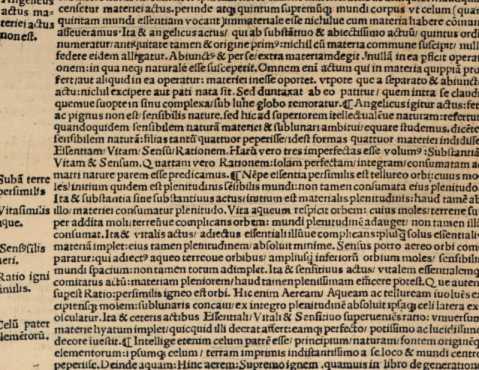 Angelicus
actus ma-
teriei actus
non est.
censetur materiei actus. perinde atqȝ quintum supremūqȝ mundi corpus vt celum (quam
quintam mundi essentiam vocant) immateriale esse nichilue cum materia habere cōmune
asseueramus. Ita & angelicus actus/ qui ab substātiuo & abiectissimo actuū/ quintus ordine
numeratur/ antiquitate tamen & origine primꝰ: nichil cū materia commune suscipit/ nullo
federe eidem alligatur. Abiunctꝰ & per se/ extra materiam degit.
onem: in qua neqȝ naturale esse susceperit. Omnem eni actum qui in materia quippiā pro-
fert/ aut aliquid in ea operatur: materiei inesse oportet. vtpote que a separato & abiuncto
actu: nichil excipere aut pati nata sit. Sed duntaxat ab eo patitur/ quem intra se claudit
quemue suopte in sinu complexa/ sub lune globo remoratur. ¶ Angelicus igitur actus: fetus
ac pignus non est: sensibilis nature. sed hic ad superiorem
quandoquidem sensibilem naturā materiei & sublunari ambitui/ equare studemus. dicētes
sensibili nature: filias tantū quattuor peperisse: & dest formas quattuor materiei indidisse
Essentiam/ Vitam/ Sensū/ Rationem. Harū vero tres imperfectas esse volumꝰ: Substantiā
Vitam & Sensum. Quartam vero Rationem: solam perfectam/ integram/ consummatam a
matri nature parem esse predicamus. ¶ Nēpe essentia perspimilis est telluree orbi: cuius mo-
les/ initium quidem est plenitudinis sēsibilis mundi: non tamen consumata eius plenitudo
Ita & substantia siue substantiuus actus/ initium est materialis plenitudinis: haud tamē ab
illo/ materiei consumatur plenitudo. Vita aqueum respicit orbem: cuius moles/ terrene su-
per addita moli: terrenūe complicans orbem: mundi plenitudinē adauget: non tamen illā
consumat. Ita & vitalis actus/ adiectus essentiali
materiā implet: eius tamen plenitudinem/ absoluit minime. Sensus porro aereo orbi com-
paratur: qui adiectꝰ aqueo terreoue orbibus/ ampliusqȝ inferiorū orbium moles/ sensibilis
mundi spacium: non tamen totum adimplet. Ita & sensitiuus actus/ vitalem essentialemqȝ
comitatus actū: materiam pleniorem/ haud tamen plenissimam efficere potest. Qui autem
supest Ratio: persimilis igneo est orbi. Hic enim Aeream/ Aqueam ac tellurcam
cipiensqȝ molem: sublunaris concaui ex integro plenitudinē absoluit
olculatur. Ita & ceteris actibus Essentiali/ Vitali & Sensitiuo superueniēs ratio:
materie hyatum implet/ quicquid illi deerat affert: eamqȝ perfecto/ potissimo ac lucidissimo
decore vestit. ¶ Intellige etenim celum patrē esse/ principium/ naturam/ fontem originēqȝ
elementorum: ipsumqȝ celum/ terram imprimis indistantissimo a se loco & mundi centro
peperisse. Deinde aquam: Hinc aerem: Supremo ignem. quamuis in libro de generatione
Subā terre
persimilis
Vita similis
aque.
Sensꝰ similis
aeri.
Ratio igni
similis.
Celū pater
elemētorū.